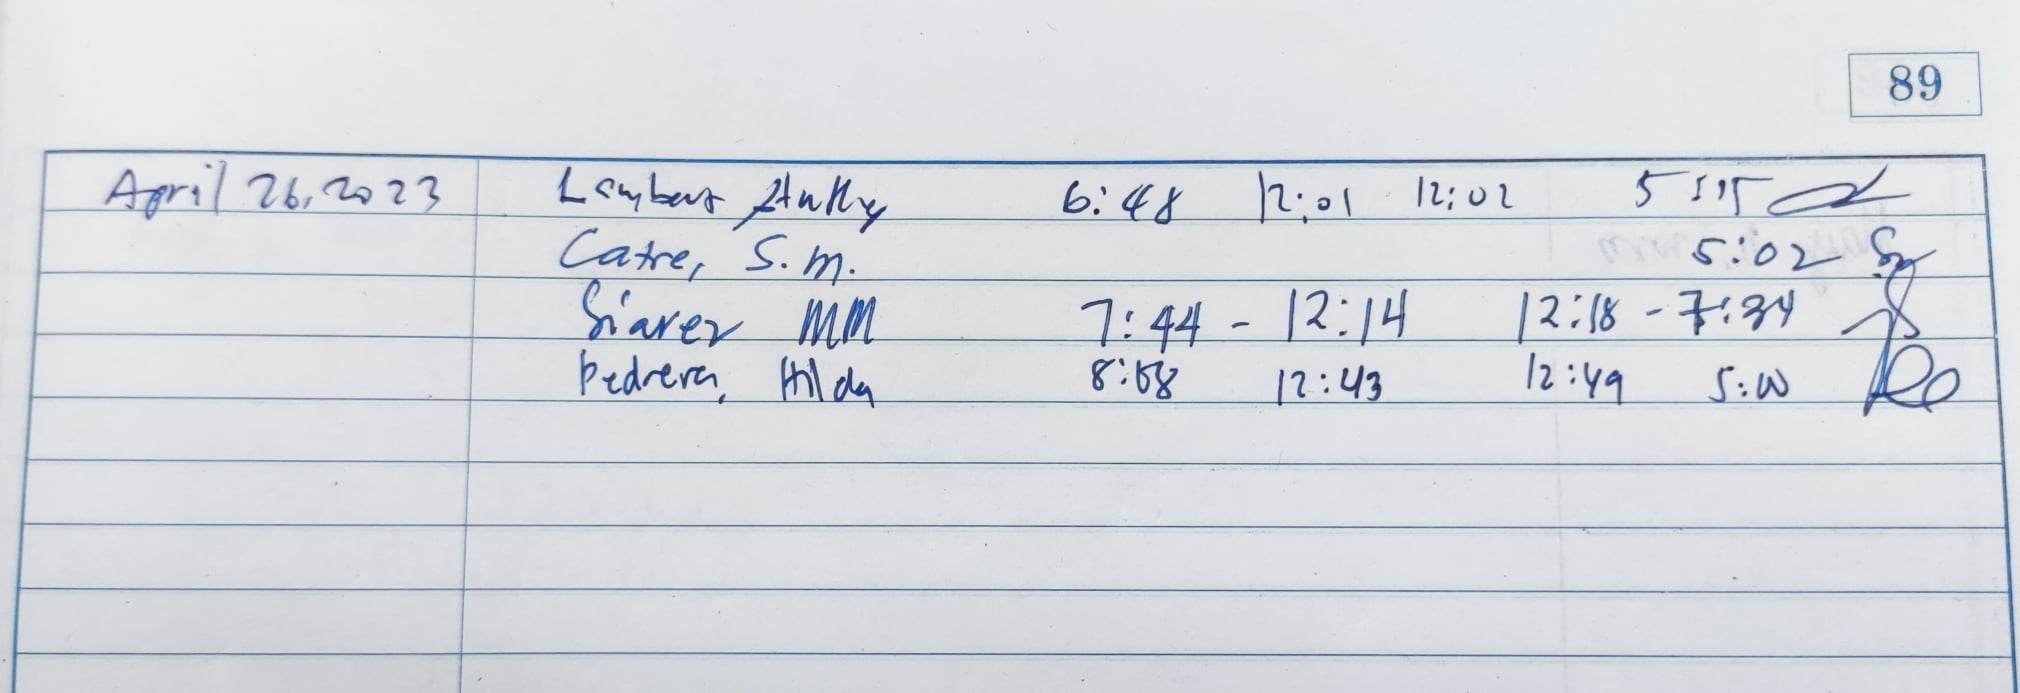 89
April 26, 2023 6:48 12:01 12:02
Catre, S.m. 5:02
Siarez MM 7:44 - 12:14 12:18 - 7:34
Pedrera, Hilda 8:58 12:43 12:49 5:00